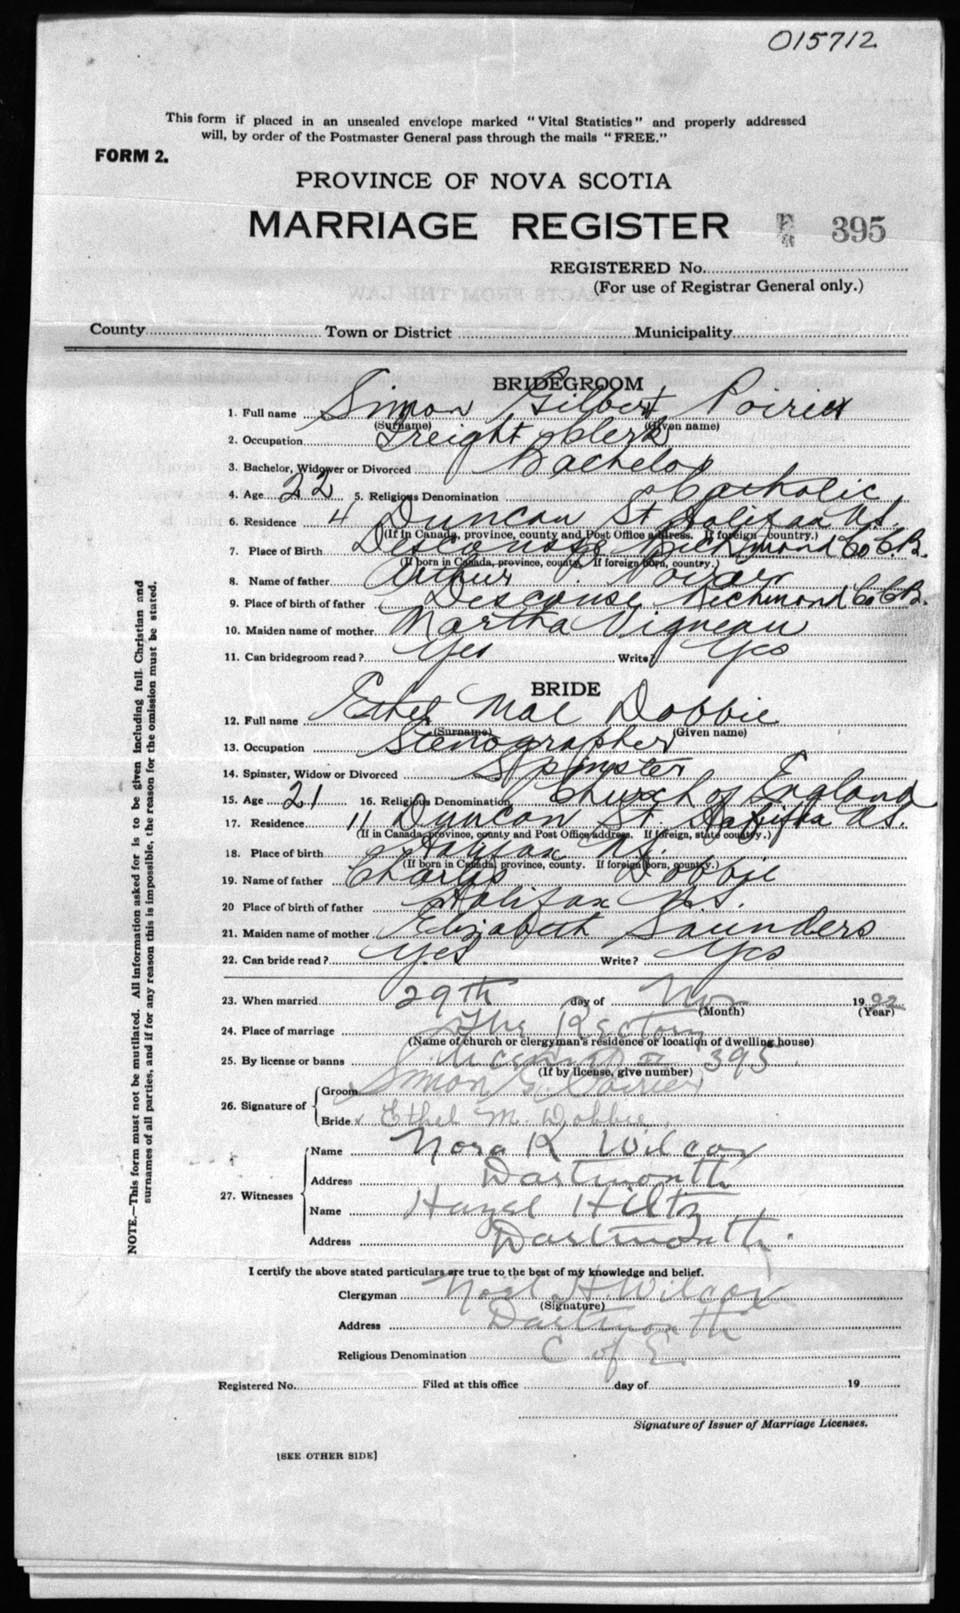 015712
This form if placed in an unsealed envelope marked "Vital Statistics" and properly addressed
will, by order of the Postmaster General pass through the mails "FREE."
FORM 2.
PROVINCE OF NOVA SCOTIA
MARRIAGE REGISTER 395
REGISTERED No.
(For use of Registrar General only.)
County Town or District Municipality
BRIDEGROOM
1. Full name Simon Gilbert Poirier
(Surname) (Given name)
2. Occupation Freight Clerk
3. Bachelor, Widower or Divorced Bachelor
4. Age 22 5. Religious Denomination Catholic
6. Residence 4 Duncan St Halifax N.S.
(If in Canada, province, county and Post Office address. If foreign country.)
7. Place of Birth Descouse Richmond Co C.B.
(If born in Canada, province, county. If foreign born, country.)
8. Name of father Arthur Poirier
9. Place of birth of father Descouse Richmond Co C.B.
10. Maiden name of mother Martha Vigneau
11. Can bridegroom read? Yes Write? Yes
BRIDE
12. Full name Ethel Mae Dobbie
(Surname) (Given name)
13. Occupation Stenographer
14. Spinster, Widow or Divorced Spinster
15. Age 21 16. Religious Denomination Church of England
17. Residence 11 Duncan St. Halifax N.S.
(If in Canada, province, county and Post Office address. If foreign, state country.)
18. Place of birth Halifax N.S.
(If born in Canada, province, county. If foreign born, country.)
19. Name of father Charles Dobbie
20 Place of birth of father Halifax N.S.
21. Maiden name of mother Elizabeth Saunders
22. Can bride read? Yes Write? Yes
23. When married 29th day of Nov 1922
(Month) (Year)
24. Place of marriage The Rectory
(Name of church or clergyman's residence or location of dwelling house)
25. By license or banns 395
(If by license, give number)
26. Signature of Groom Simon G. Poirier
Bride Ethel M. Dobbie
27. Witnesses Name Nora K Wilcox
Address Dartmouth
Name Hazel Hiltz
Address Dartmouth.
I certify the above stated particulars are true to the best of my knowledge and belief.
Clergyman Noel H. Wilcox
(Signature)
Address Dartmouth
Religious Denomination C of E.
Registered No. Filed at this office day of 19
Signature of Issuer of Marriage Licenses.
[SEE OTHER SIDE]
NOTE.—This form must not be mutilated. All information asked for is to be given including full Christian and
surnames of all parties, and if for any reason this is impossible, the reason for the omission must be stated.